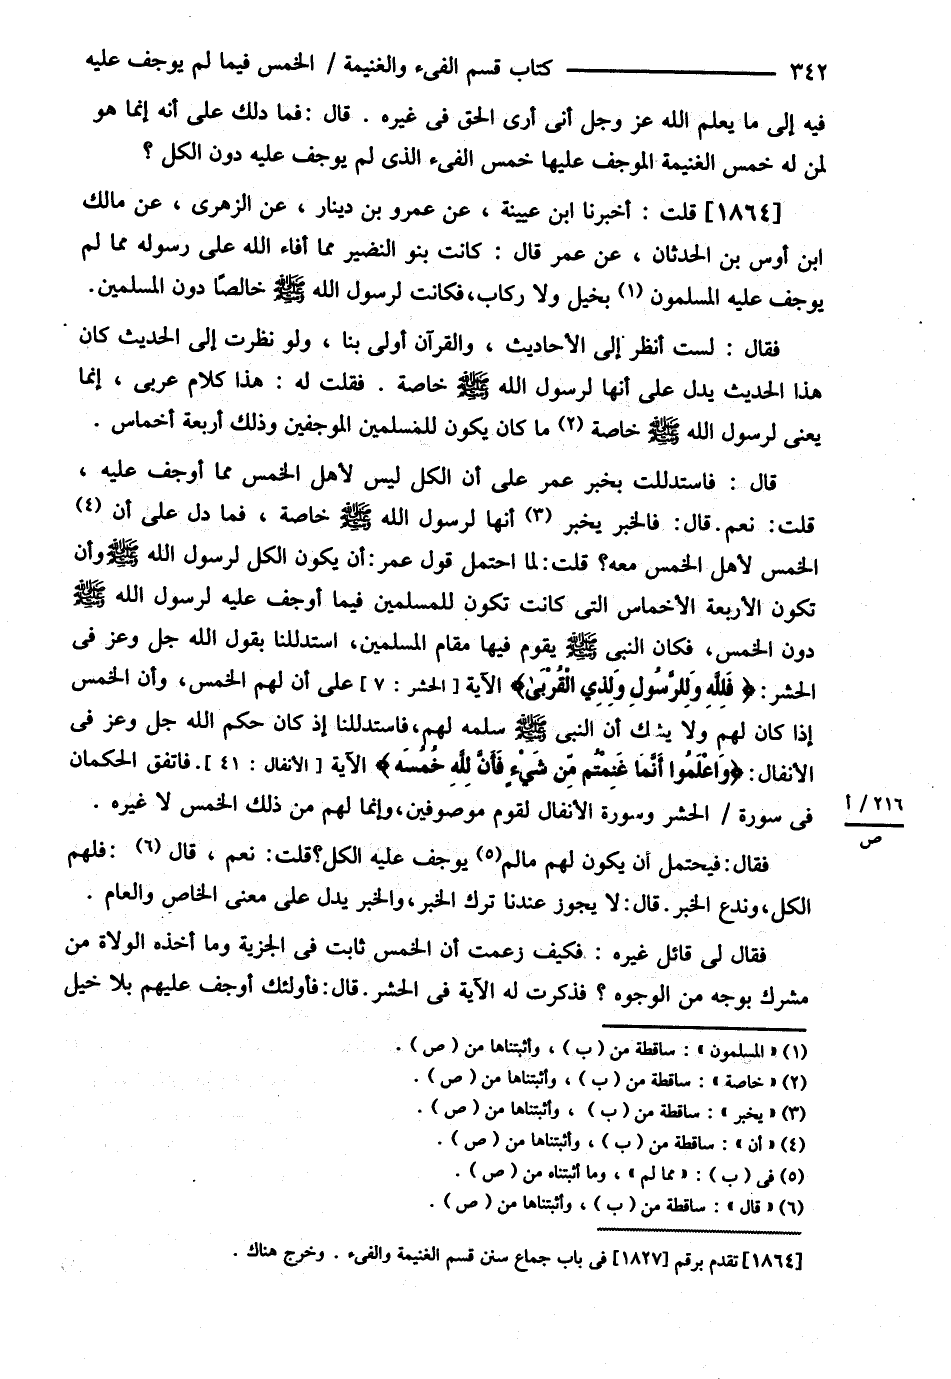 ٣٤٢ ــــــــــــ كتاب قسم الفىء والغنيمة / الخمس فيما لم يوجف عليه
فيه إلى ما يعلم الله عز وجل أنى أرى الحق فى غيره . قال :فما دلك على أنه إنما هو
لمن له خمس الغنيمة الموجف عليها خمس الفىء الذى لم يوجف عليه دون الكل ؟
[١٨٦٤] قلت : أخبرنا ابن عيينة ، عن عمرو بن دينار ، عن الزهرى ، عن مالك
ابن أوس بن الحدثان ، عن عمر قال : كانت بنو النضير مما أفاء الله على رسوله مما لم
يوجف عليه المسلمون (١) بخيل ولا ركاب،فكانت لرسول الله ﷺ خالصًا دون المسلمين.
فقال : لست أنظر إلى الأحاديث ، والقرآن أولى بنا ، ولو نظرت إلى الحديث كان
هذا الحديث يدل على أنها لرسول الله ﷺ خاصة . فقلت له : هذا كلام عربى ، إنما
يعنى لرسول الله ﷺ خاصة (٢) ما كان يكون للمسلمين الموجفين وذلك أربعة أخماس .
قال : فاستدللت بخبر عمر على أن الكل ليس لأهل الخمس مما أوجف عليه ،
قلت: نعم.قال: فالخبر يخبر (٣) أنها لرسول الله ﷺ خاصة ، فما دل على أن (٤)
الخمس لأهل الخمس معه؟ قلت:لما احتمل قول عمر:أن يكون الكل لرسول الله ﷺ وأن
تكون الأربعة الأخماس التى كانت تكون للمسلمين فيما أوجف عليه لرسول الله ﷺ
دون الخمس، فكان النبى ﷺ يقوم فيها مقام المسلمين، استدللنا بقول الله جل وعز فى
الحشر:﴿ فَلِلَّهِ وَلِلرَّسُولِ وَلِذِي الْقُرْبَىٰ﴾ الآية [ الحشر : ٧ ] على أن لهم الخمس، وأن الخمس
إذا كان لهم ولا يشك أن النبى ﷺ سلمه لهم،فاستدللنا إذ كان حكم الله جل وعز فى
الأنفال:﴿وَاعْلَمُوا أَنَّمَا غَنِمْتُم مِّن شَيْءٍ فَأَنَّ لِلَّهِ خُمُسَه ﴾ الآية [ الأنفال : ٤١ ].فاتفق الحكمان
فى سورة / الحشر وسورة الأنفال لقوم موصوفين،وإنما لهم من ذلك الخمس لا غيره .
٢١٦/ أ
ص
فقال:فيحتمل أن يكون لهم مالم(٥) يوجف عليه الكل؟قلت: نعم ، قال (٦) :فلهم
الكل،وندع الخبر.قال:لا يجوز عندنا ترك الخبر،والخبر يدل على معنى الخاص والعام .
فقال لى قائل غيره : فكيف زعمت أن الخمس ثابت فى الجزية وما أخذه الولاة من
مشرك بوجه من الوجوه ؟ فذكرت له الآية فى الحشر.قال:فأولئك أوجف عليهم بلا خيل
(١) « المسلمون » : ساقطة من ( ب ) ، وأثبتناها من ( ص ) .
(٢) « خاصة » : ساقطة من ( ب ) ، وأثبتناها من ( ص ) .
(٣) « يخبر » : ساقطة من ( ب ) ، وأثبتناها من ( ص ) .
(٤) « أن » : ساقطة من ( ب ) ، وأثبتناها من ( ص ) .
(٥) فى ( ب ) : « مما لم » ، وما أثبتناه من ( ص ) .
(٦) « قال » : ساقطة من ( ب ) ، وأثبتناها من ( ص ) .
[١٨٦٤] تقدم برقم [١٨٢٧] فى باب جماع سنن قسم الغنيمة والفىء . وخرج هناك .